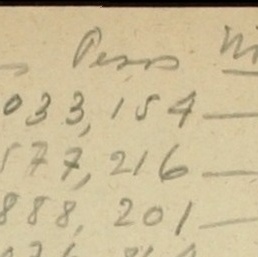 Pesos
033,154—
577,216—
888,201—